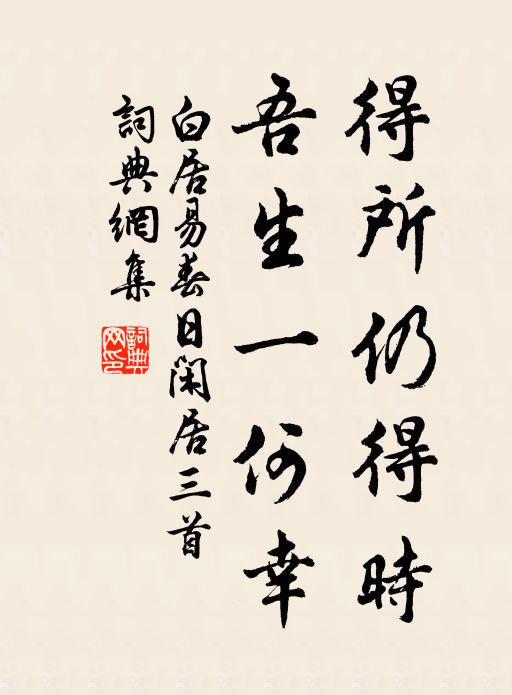 得所仍得時
吾生一何幸
白居易春日閑居三首
詞典網集
詞典網印